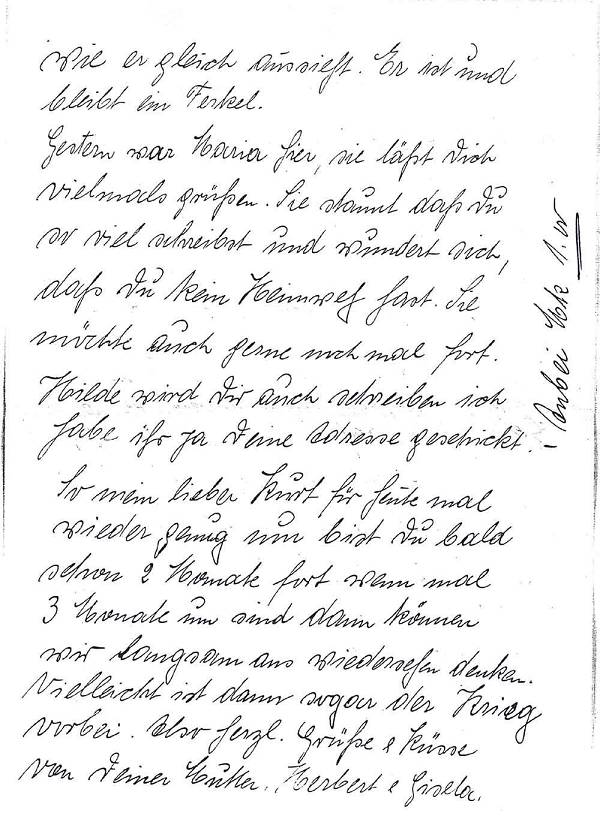 wie er gleich aussieht. Er ist und
bleibt ein Ferkel.
Gestern war Maria hier, sie läßt Dich
vielmals grüßen. Sie staunt daß Du
so viel schreibst und wundert sich,
daß Du kein Heimweh hast. Sie
möchte auch gerne noch mal fort.
Hilde wird Dir auch schreiben ich
habe ihr ja Deine Adresse geschickt.
So mein lieber Kurt für heute mal
wieder genug nun bist Du bald
schon 2 Monate fort wenn mal
3 Monate um sind dann können
wir langsam ans wiedersehen denken.
Vielleicht ist dann sogar der Krieg
vorbei. Also herzl. Grüße & Küsse
von Deiner Mutter. Herbert & Gisela.
- Anbei Mk 1.-